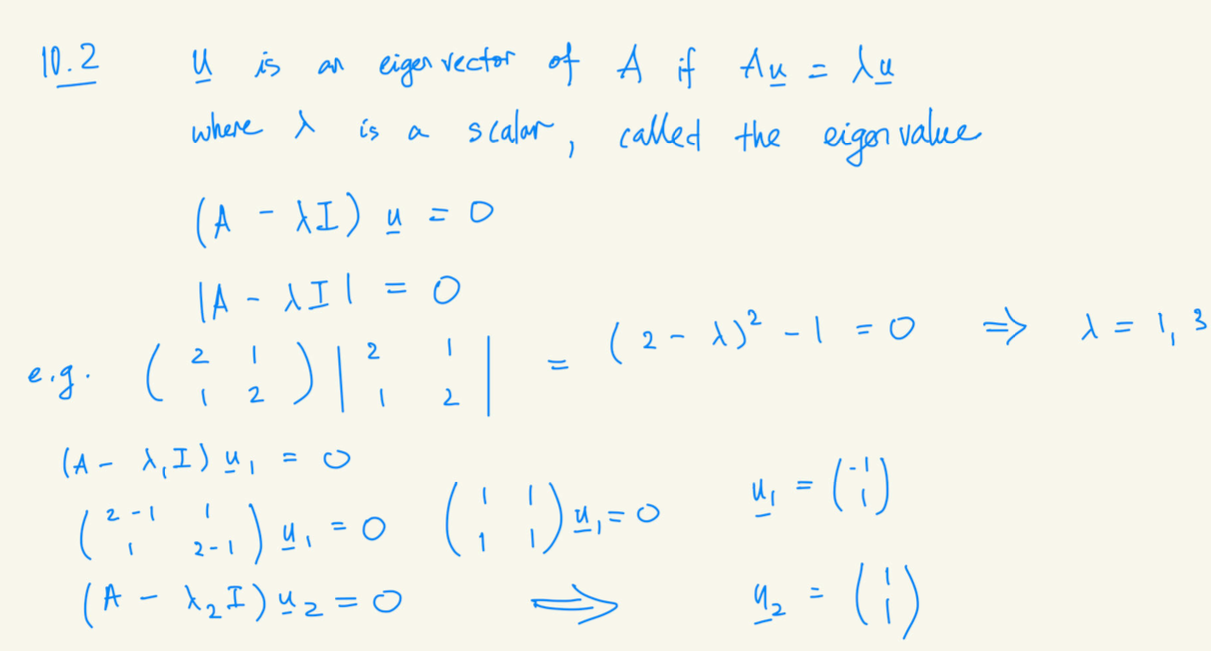 10.2 u is an eigenvector of A if Au = λu
where λ is a scalar, called the eigenvalue
(A - λI) u = 0
|A - λI| = 0
e.g. ( 2 1 ; 1 2 ) | 2 1 ; 1 2 | = (2 - λ)² - 1 = 0 ⇒ λ = 1, 3
(A - λ₁I) u₁ = 0
( 2-1 1 ; 1 2-1 ) u₁ = 0 ( 1 1 ; 1 1 ) u₁ = 0 u₁ = ( -1 ; 1 )
(A - λ₂I) u₂ = 0 ⇒ u₂ = ( 1 ; 1 )